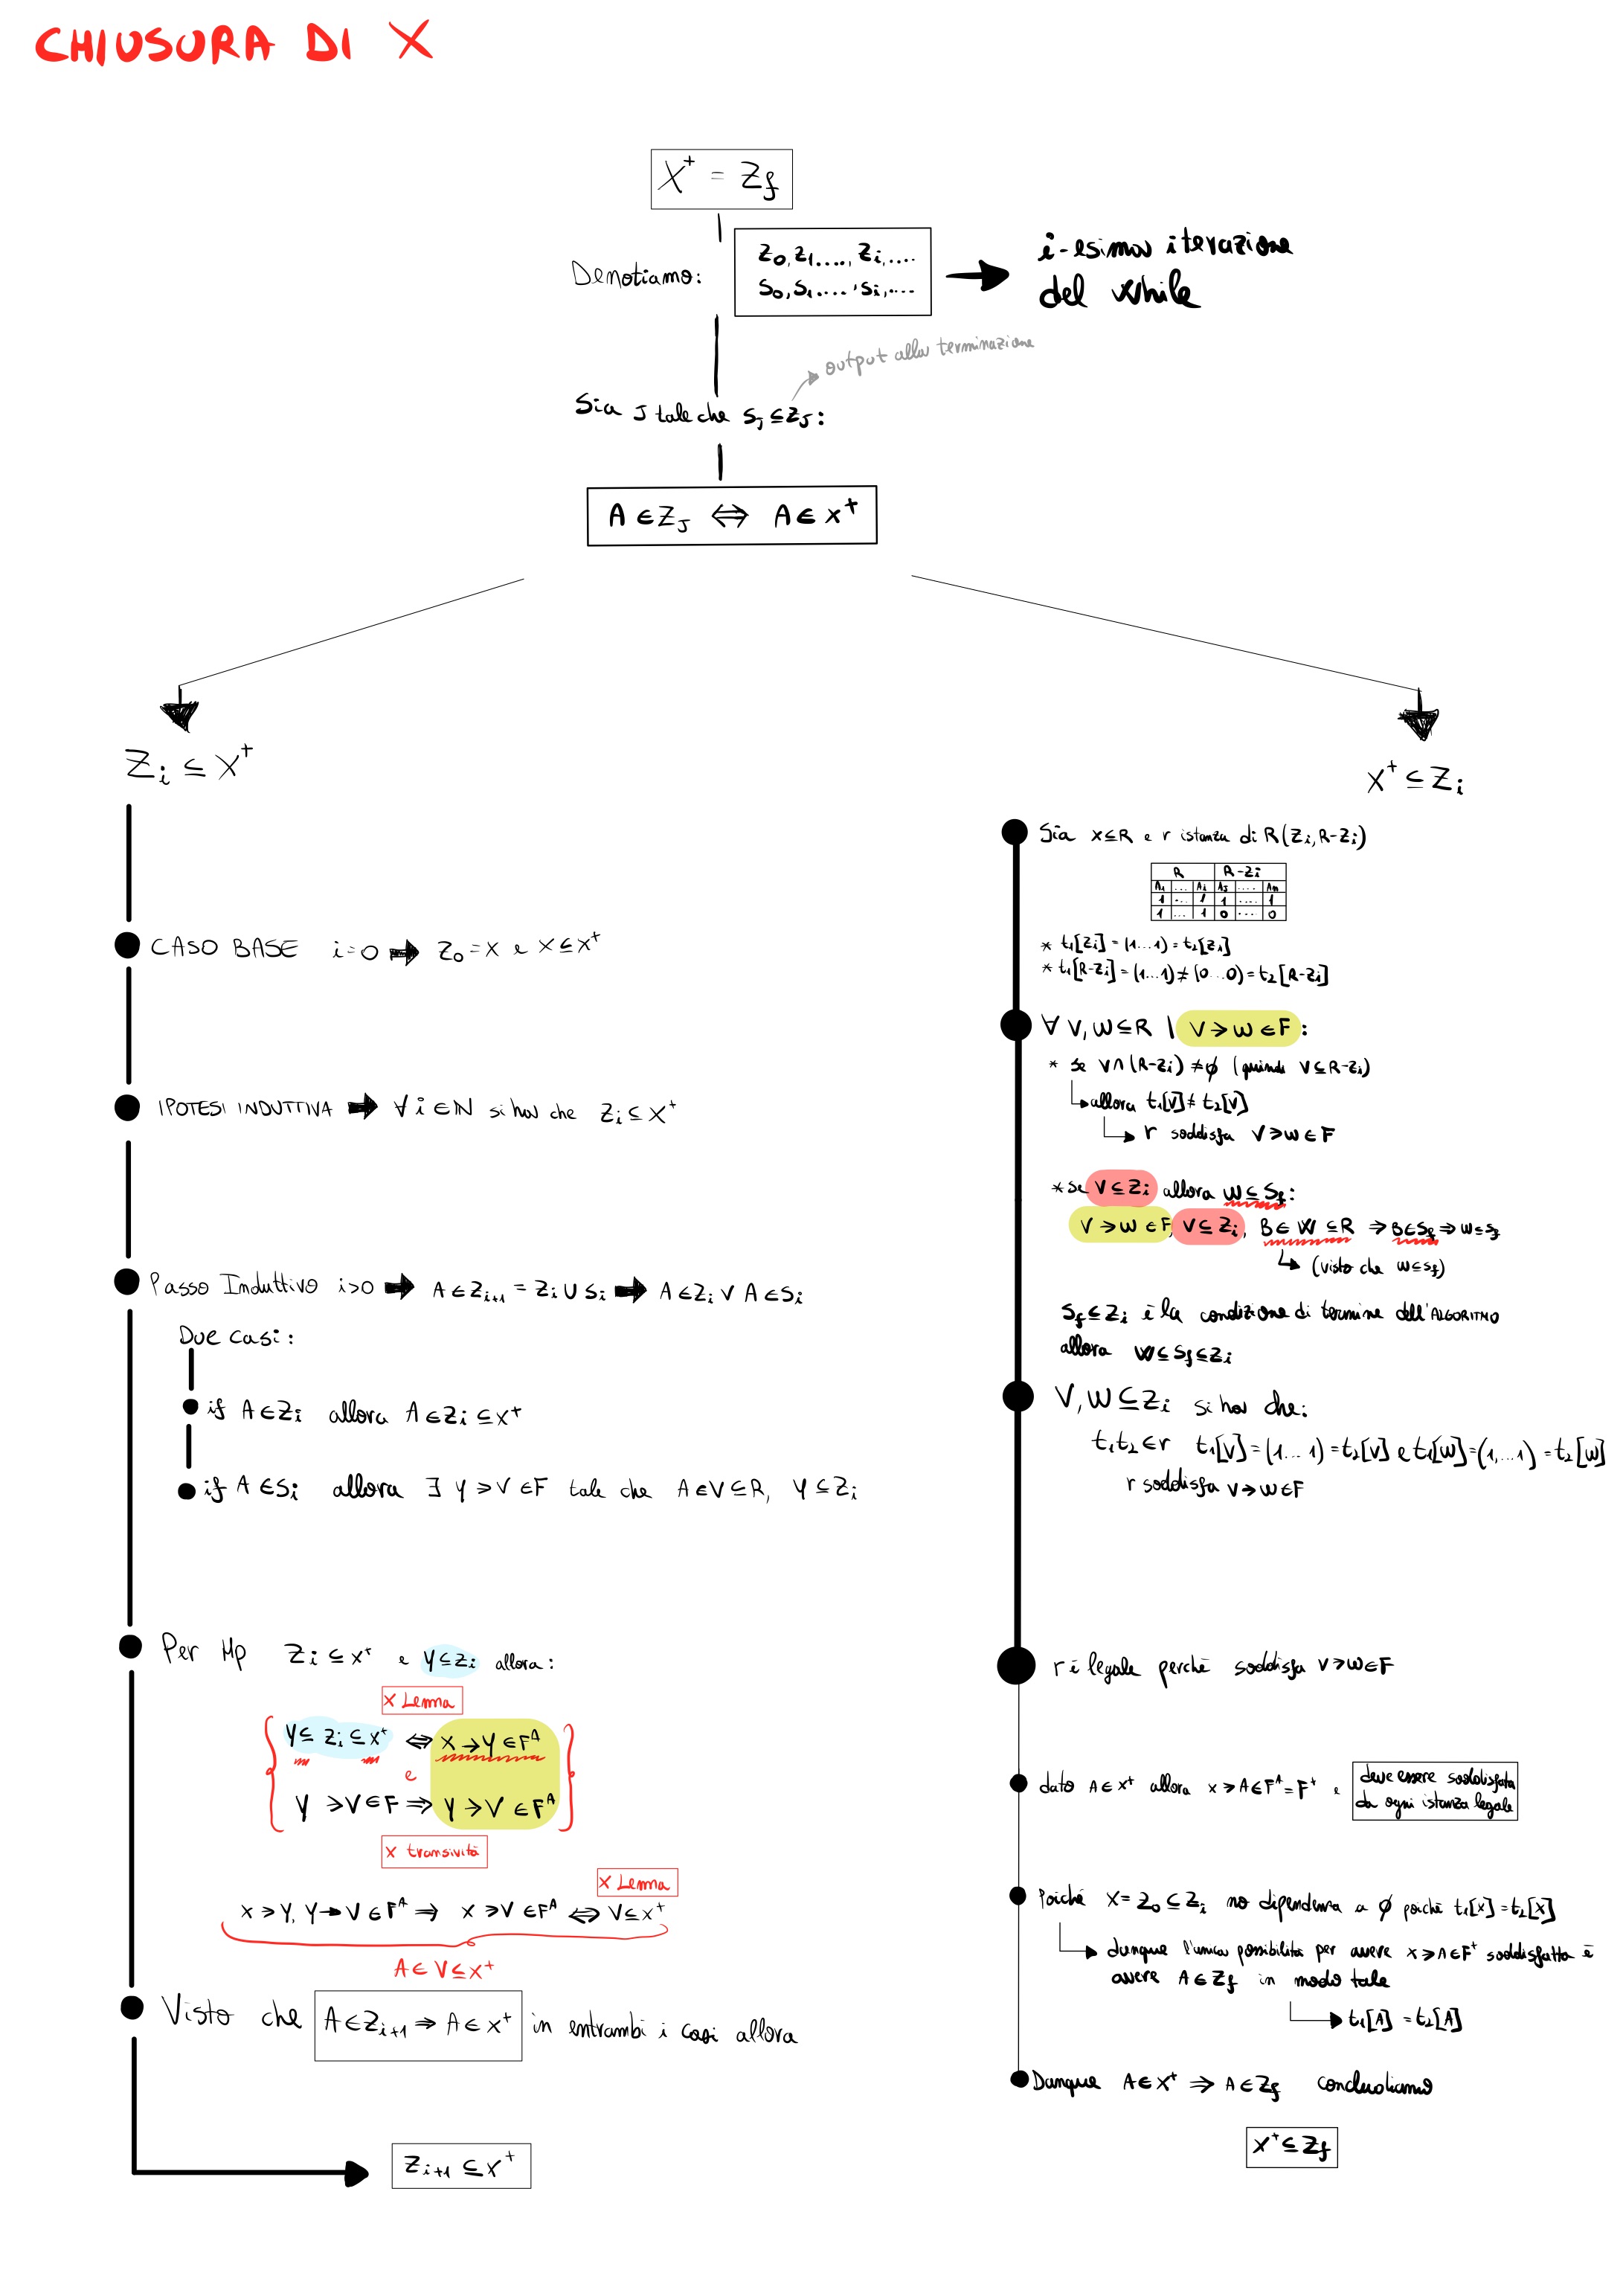 CHIUSURA DI X
X⁺ = Zf
Denotiamo:
Z₀, Z₁ ...., Zᵢ, ....
S₀, S₁ .... , Sᵢ, ....
i-esima iterazione
del while
output alla terminazione
Sia J tale che Sⱼ ⊆ Zⱼ :
A ∈ Zⱼ ⇔ A ∈ X⁺
Zᵢ ⊆ X⁺
CASO BASE i=0 → Z₀ = X e X ⊆ X⁺
IPOTESI INDUTTIVA → ∀ i ∈ ℕ si ha che Zᵢ ⊆ X⁺
Passo Induttivo i>0 → A ∈ Zᵢ₊₁ = Zᵢ ∪ Sᵢ → A ∈ Zᵢ ∨ A ∈ Sᵢ
Due casi :
if A ∈ Zᵢ allora A ∈ Zᵢ ⊆ X⁺
if A ∈ Sᵢ allora ∃ Y → V ∈ F tale che A ∈ V ⊆ R, Y ⊆ Zᵢ
Per Hp Zᵢ ⊆ X⁺ e Y ⊆ Zᵢ allora :
X Lemma
Y ⊆ Zᵢ ⊆ X⁺ ⇔ X → Y ∈ Fᴬ
e
Y → V ∈ F ⇒ Y → V ∈ Fᴬ
X transività
X Lemma
X → Y, Y → V ∈ Fᴬ ⇒ X → V ∈ Fᴬ ⇔ V ⊆ X⁺
A ∈ V ⊆ X⁺
Visto che A ∈ Zᵢ₊₁ ⇒ A ∈ X⁺ in entrambi i casi allora
Zᵢ₊₁ ⊆ X⁺
X⁺ ⊆ Zᵢ
Sia X ⊆ R e r istanza di R(Zᵢ, R-Zᵢ)
R R-Zᵢ
A₁ ... Aᵢ Aⱼ .... Aₙ
1 ... 1 1 .... 1
1 ... 1 0 .... 0
* t₁[Zᵢ] = (1...1) = t₂[Zᵢ]
* t₁[R-Zᵢ] = (1...1) ≠ (0...0) = t₂[R-Zᵢ]
∀ V, W ⊆ R | V → W ∈ F :
* se V ∩ (R-Zᵢ) ≠ ∅ (quindi V ⊆ R-Zᵢ)
allora t₁[V] ≠ t₂[V]
r soddisfa V → W ∈ F
* se V ⊆ Zᵢ allora W ⊆ Sf :
V → W ∈ F, V ⊆ Zᵢ, B ∈ W ⊆ R ⇒ B ∈ Sf ⇒ W ⊆ Sf
(visto che W ⊆ Sf)
Sf ⊆ Zᵢ è la condizione di termine dell'ALGORITMO
allora W ⊆ Sf ⊆ Zᵢ
V, W ⊆ Zᵢ si ha che:
t₁ t₂ ∈ r t₁[V] = (1...1) = t₂[V] e t₁[W] = (1,...1) = t₂[W]
r soddisfa V → W ∈ F
r è legale perchè soddisfa V → W ∈ F
dato A ∈ X⁺ allora X → A ∈ Fᴬ = F⁺ e deve essere soddisfata
da ogni istanza legale
Poichè X = Z₀ ⊆ Zᵢ no dipendenza a ∅ poichè t₁[X] = t₂[X]
dunque l'unica possibilità per avere X → A ∈ F⁺ soddisfatta è
avere A ∈ Zf in modo tale
t₁[A] = t₂[A]
Dunque A ∈ X⁺ ⇒ A ∈ Zf concludiamo
X⁺ ⊆ Zf